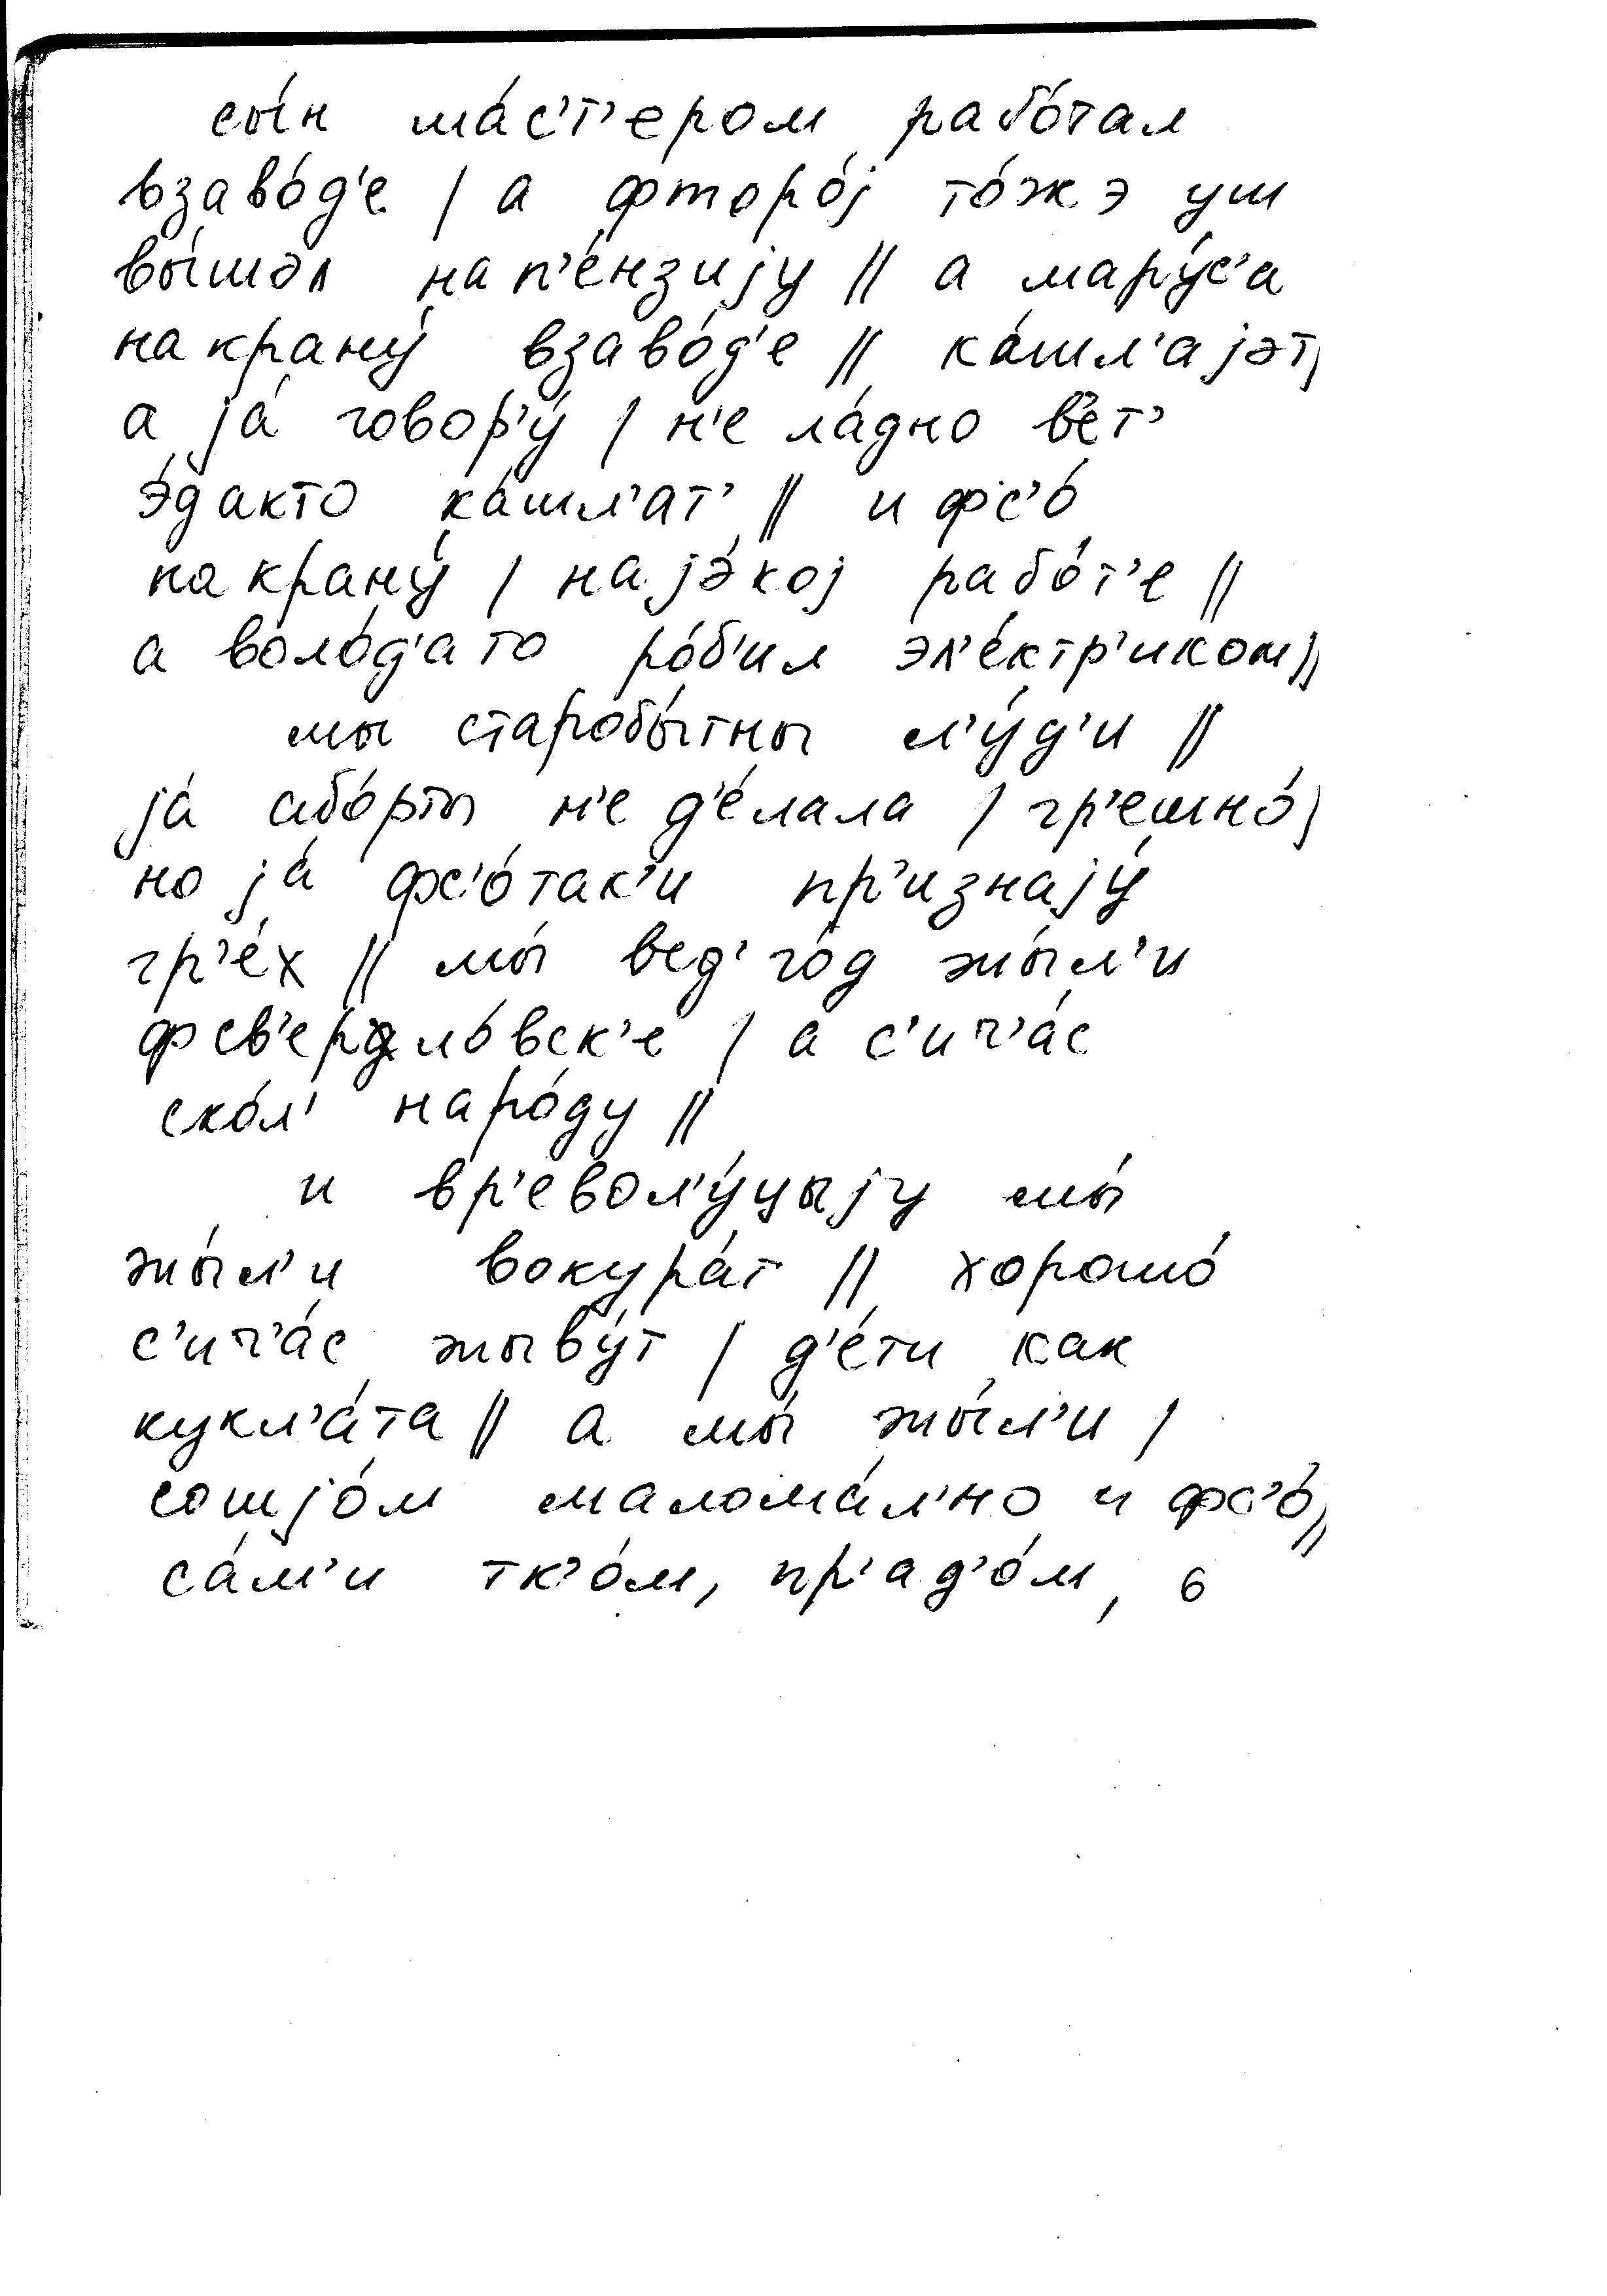 сы́н ма́с'т'ером рабо́тал
взаво́д'е / а фторо́j то́жэ уш
вы́шэл нап'е́нзиjу // а мару́с'а
накрану́ взаво́д'е // ка́шл'аjэт /
а jа́ говор'у́ / н'е ла́дно в'е́т'
э́дакто ка́шл'ат' // и фс'о́
накрану́ / наjэ́коj рабо́т'е //
а воло́д'ато ро́б'ил эл'е́ктр'иком //
мы старобы́тны л'у́д'и //
jа́ або́рты н'е д'е́лала / гр'ешно́ /
но jа́ фс'о́так'и пр'изнаjу́
гр'е́х // мы́ вед' го́д жы́л'и
фсв'ердло́вск'е / а с'ич'а́с
ско́л' наро́ду //
и вр'евол'у́цыjу мы́
жы́л'и вокура́т // хорошо́
с'ич'а́с жыву́т / д'е́ти как
кукл'а́та // а мы́ жы́л'и /
сошjо́м малома́л'но и фс'о́ //
са́м'и тк'о́м, пр'ад'о́м, 6